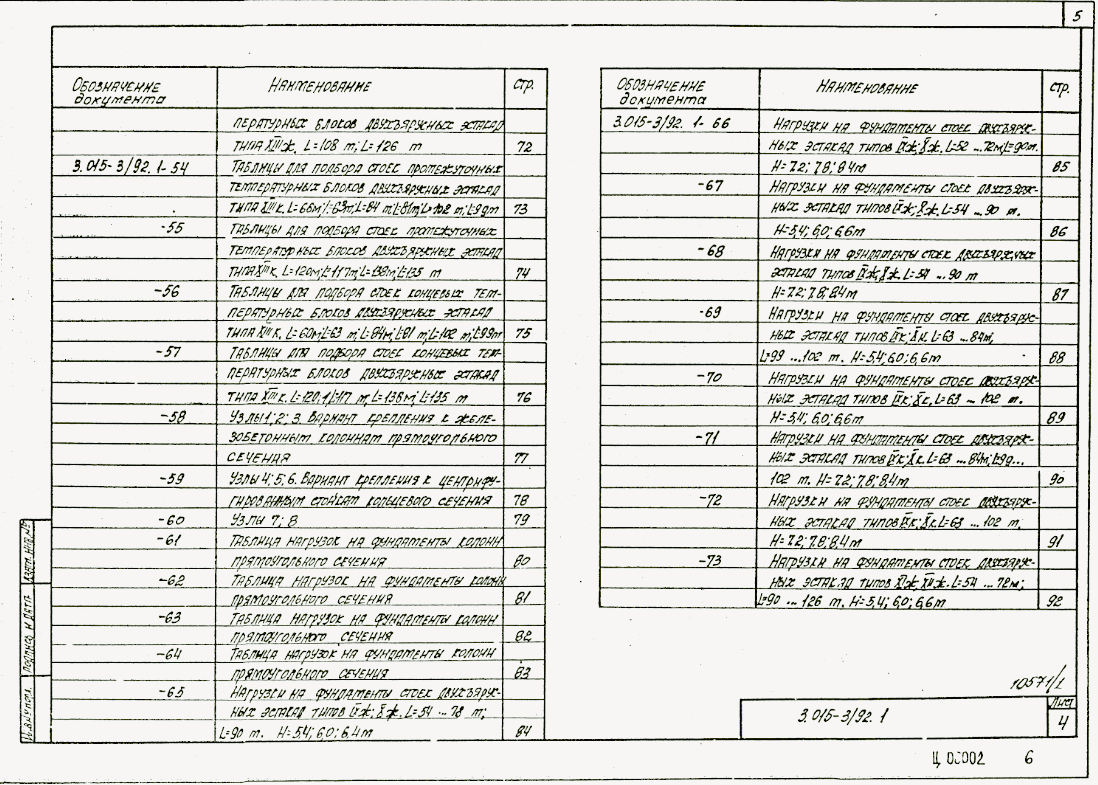 5
Обозначение документа Наименование стр.
пературных блоков двухъярусных эстакад
типа XIIIж. L=108 м; L=126 м 72
3.015-3/92. 1-54 Таблицы для подбора стоек промежуточных
температурных блоков двухъярусных эстакад
типа XIIIк. L=66м; L=63м; L=84 м; L=81м; L=102 м; L=99м 73
-55 Таблицы для подбора стоек промежуточных
температурных блоков двухъярусных эстакад
типа XIIIк. L=120м; L=117м; L=138м; L=135 м 74
-56 Таблицы для подбора стоек концевых тем-
пературных блоков двухъярусных эстакад
типа XIIIк. L=60м; L=63 м; L=84м; L=81 м; L=102 м; L=99м 75
-57 Таблицы для подбора стоек концевых тем-
пературных блоков двухъярусных эстакад
типа XIIIк. L=120; L=117 м, L=138м; L=135 м 76
-58 Узлы 1; 2; 3. Вариант крепления к желе-
зобетонным колоннам прямоугольного
сечения 77
-59 Узлы 4; 5; 6. Вариант крепления к центрифу-
гированным стойкам кольцевого сечения 78
-60 Узлы 7; 8 79
-61 Таблица нагрузок на фундаменты колонн
прямоугольного сечения 80
-62 Таблица нагрузок на фундаменты колонн
прямоугольного сечения 81
-63 Таблица нагрузок на фундаменты колонн
прямоугольного сечения 82
-64 Таблица нагрузок на фундаменты колонн
прямоугольного сечения 83
-65 Нагрузки на фундаменты стоек двухъярус-
ных эстакад типов IXж; Xж. L=54 ... 78 м;
L=90 м. H=5,4; 6,0; 6,4м 84
Обозначение документа Наименование стр.
3.015-3/92. 1-66 Нагрузки на фундаменты стоек двухъярус-
ных эстакад типов IXж; Xж. L=52 ... 72м; L=90м.
H=7,2; 7,8; 8,4м 85
-67 Нагрузки на фундаменты стоек двухъярус-
ных эстакад типов IXж; Xж. L=54 ... 90 м.
H=5,4; 6,0; 6,6м 86
-68 Нагрузки на фундаменты стоек двухъярусных
эстакад типов IXж; Xж. L=54 ... 90 м
H=7,2; 7,8; 8,4м 87
-69 Нагрузки на фундаменты стоек двухъярус-
ных эстакад типов IXк; Xк. L=63 ... 84м;
L=99 ... 102 м. H=5,4; 6,0; 6,6м 88
-70 Нагрузки на фундаменты стоек двухъярус-
ных эстакад типов IXк; Xк. L=63 ... 102 м.
H=5,4; 6,0; 6,6м 89
-71 Нагрузки на фундаменты стоек двухъярус-
ных эстакад типов IXк; Xк. L=63 ... 84м; L=99...
102 м. H=7,2; 7,8; 8,4м 90
-72 Нагрузки на фундаменты стоек двухъярус-
ных эстакад типов IXк; Xк. L=63 ... 102 м;
H=7,2; 7,8; 8,4м 91
-73 Нагрузки на фундаменты стоек двухъярус-
ных эстакад типов XIж; XIIж. L=54 ... 72м;
L=90 ... 126 м. H=5,4; 6,0; 6,6м 92
Взам. инв. №
Подпись и дата
Инв. № подл.
10571/1
3.015-3/92. 1
Лист
4
Ц 00002 6